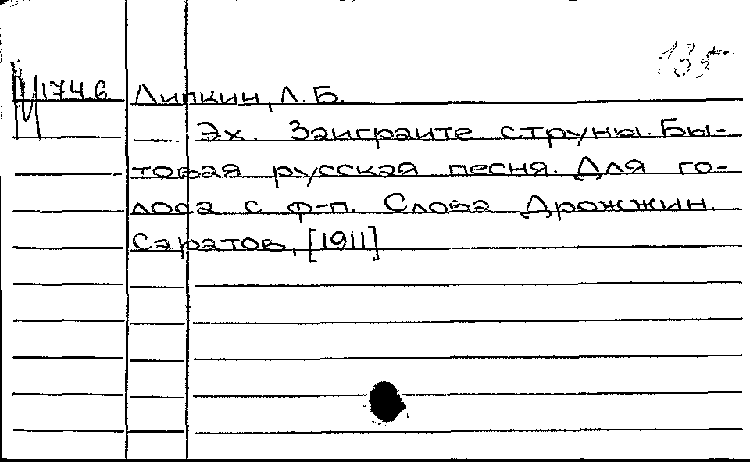 135
М 174.6 Липкин, Л. Б.
Эх. Заиграите струны. Бы-
товая русская песня. Для го-
лоса с ф-п. Слова Дрожжин.
Саратов, [1911]